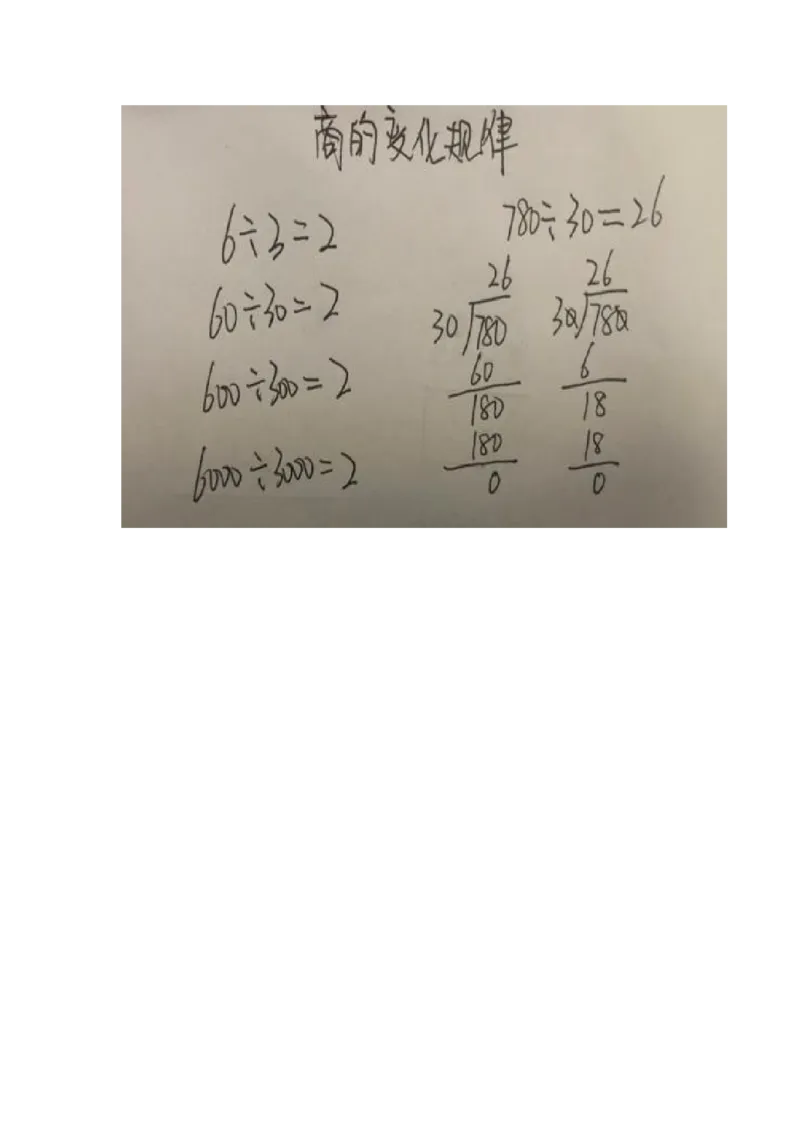 商的变化规律
6÷3=2
60÷30=2
600÷300=2
6000÷3000=2
780÷30=26
26
30/780
60
180
180
0
26
30/780
6
18
18
0